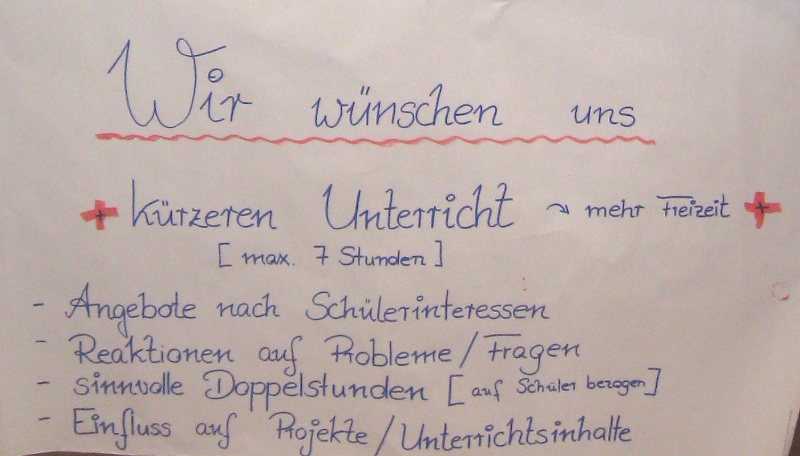 Wir wünschen uns
+ kürzeren Unterricht ↝ mehr Freizeit +
[max. 7 Stunden]
- Angebote nach Schülerinteressen
- Reaktionen auf Probleme/Fragen
- sinnvolle Doppelstunden [auf Schüler bezogen]
- Einfluss auf Projekte/Unterrichtsinhalte